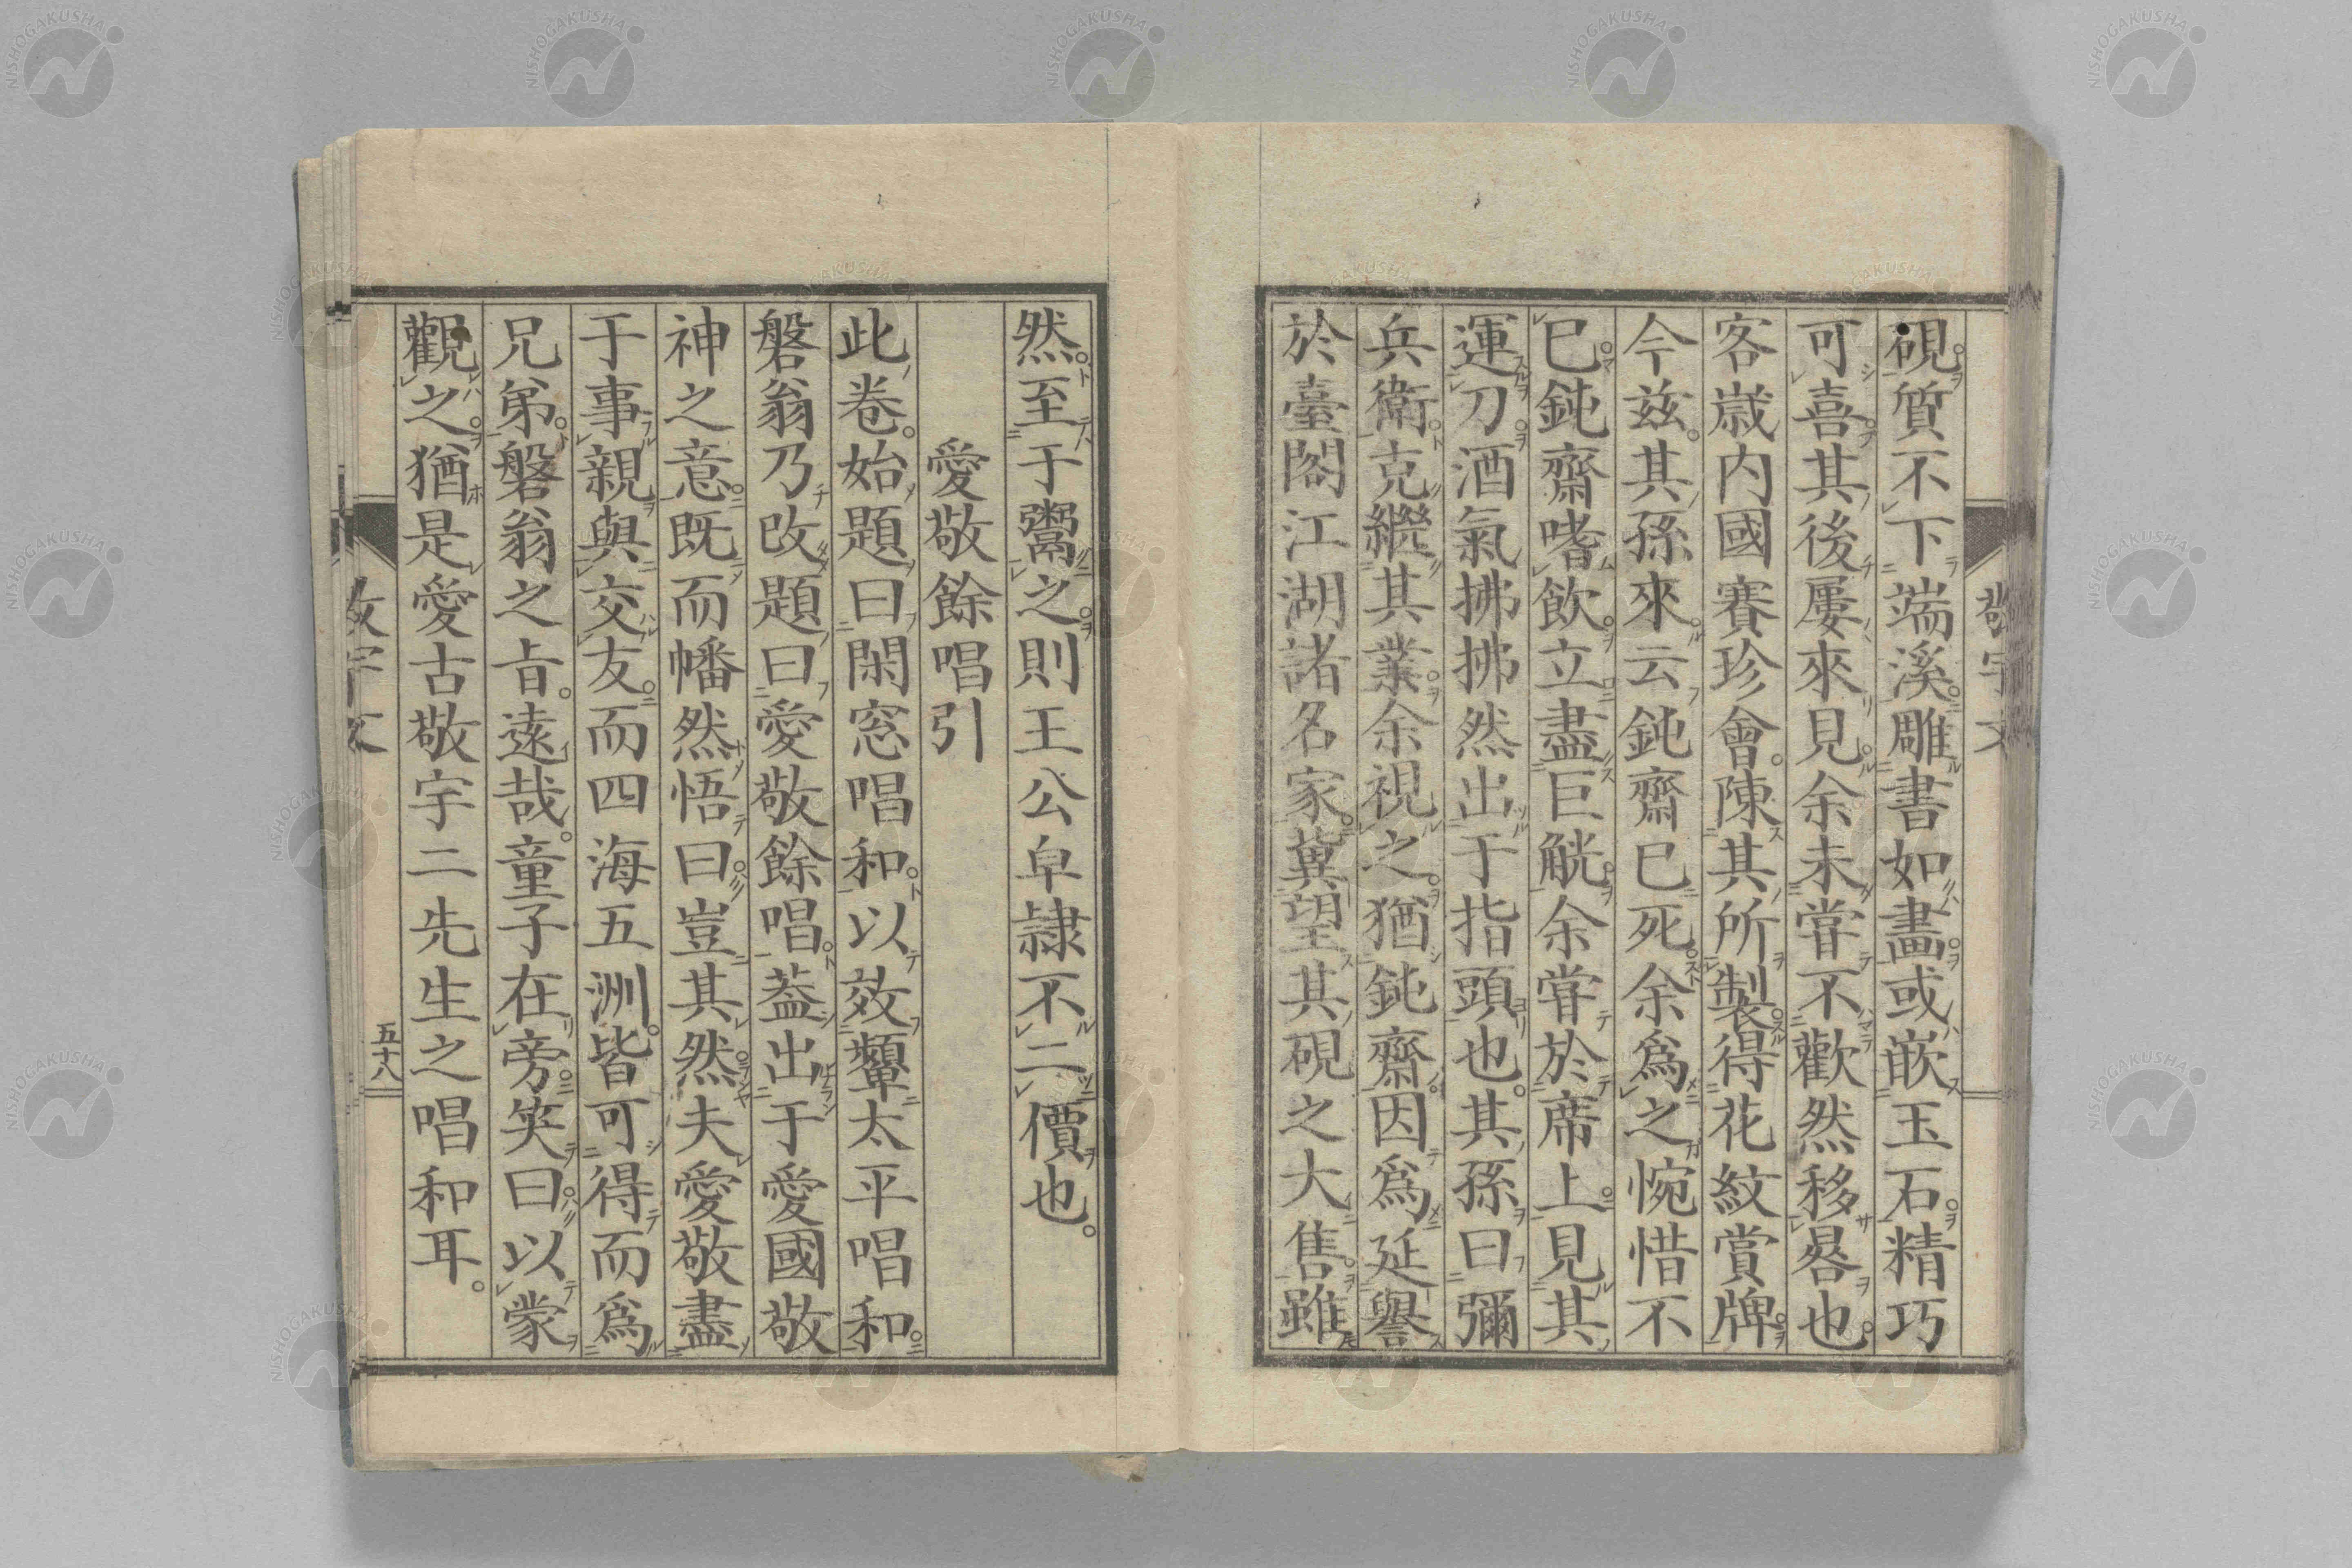 硯質不下端溪雕書如畫或嵌玉石精巧
可喜其後屢來見余未甞不歡然移晷也
客歲内國賽珍會陳其所製得花紋賞牌
今茲其孫來云鈍齋已死余爲之惋惜不
已鈍齋嗜飲立盡巨觥余甞於席上見其
運刀酒氣拂拂然出于指頭也其孫曰彌
兵衛克繼其業余視之猶鈍齋因爲延譽
於臺閣江湖諸名家冀望其硯之大售雖
然至于鬻之則王公皁隷不二價也
愛敬餘唱引
此卷始題曰閑窓唱和以效顰太平唱和
磐翁乃改題曰愛敬餘唱葢出于愛國敬
神之意既而幡然悟曰豈其然夫愛敬盡
于事親與交友而四海五洲皆可得而爲
兄弟磐翁之旨遠哉童子在旁笑曰以蒙
觀之猶是愛古敬宇二先生之唱和耳
敬宇文
五十八
NISHOGAKUSHA